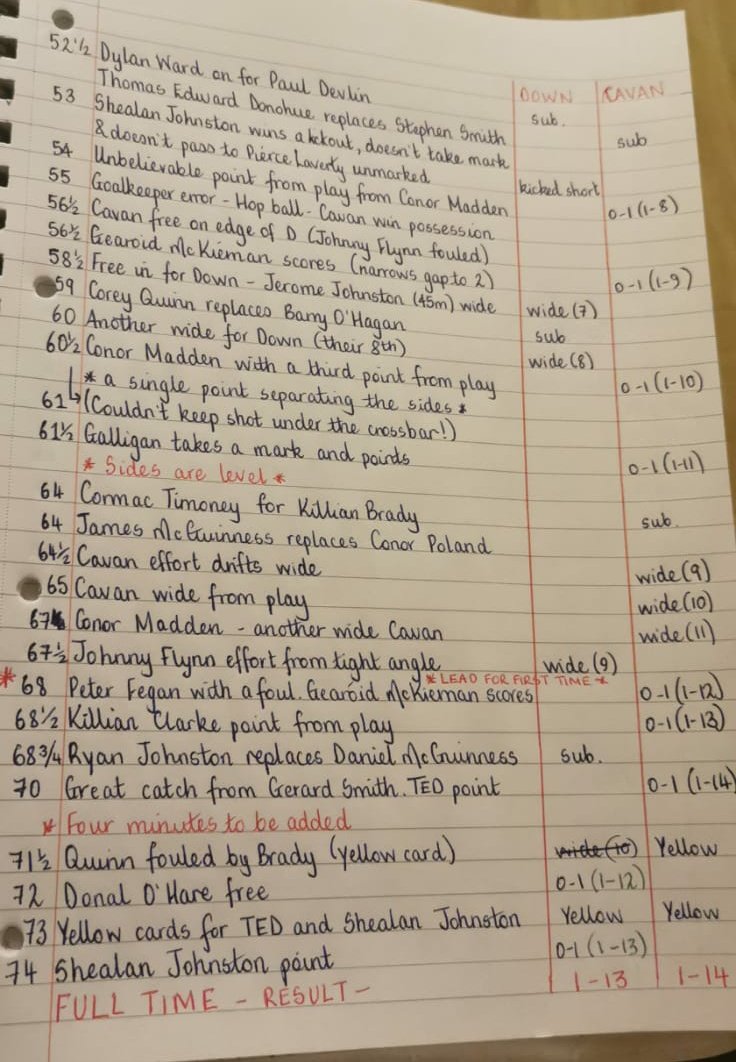 DOWN CAVAN
52 1/2 Dylan Ward on for Paul Devlin sub.
Thomas Edward Donohue replaces Stephen Smith sub
53 Shealan Johnston wins a kckout, doesn't take mark
& doesn't pass to Pierce Laverty unmarked kicked short
54 Unbelievable point from play from Conor Madden 0-1 (1-8)
55 Goalkeeper error - Hop ball - Cavan win possession
56½ Cavan free on edge of D (Johnny Flynn fouled)
56½ Gearoid McKiernan scores (narrows gap to 2) 0-1 (1-9)
58½ Free in for Down - Jerome Johnston (45m) wide wide (7)
59 Corey Quinn replaces Barry O'Hagan sub
60 Another wide for Down (their 8th) wide (8)
60½ Conor Madden with a third point from play 0-1 (1-10)
↳ * a single point separating the sides *
61 ↳ (Couldn't keep shot under the crossbar!)
61½ Galligan takes a mark and points 0-1 (1-11)
* Sides are level *
64 Cormac Timoney for Killian Brady sub.
64 James McGuinness replaces Conor Poland
64½ Cavan effort drifts wide wide (9)
65 Cavan wide from play wide (10)
67 Conor Madden - another wide Cavan wide (11)
67½ Johnny Flynn effort from tight angle wide (9)
* LEAD FOR FIRST TIME *
* 68 Peter Fegan with a foul. Gearoid McKiernan scores 0-1 (1-12)
68½ Killian Clarke point from play 0-1 (1-13)
68 3/4 Ryan Johnston replaces Daniel McGuinness sub.
70 Great catch from Gerard Smith. TED point 0-1 (1-14)
* Four minutes to be added
71½ Quinn fouled by Brady (yellow card) wide (10) Yellow
72 Donal O'Hare free 0-1 (1-12)
73 Yellow cards for TED and Shealan Johnston Yellow Yellow
74 Shealan Johnston point 0-1 (1-13)
FULL TIME - RESULT - 1-13 1-14